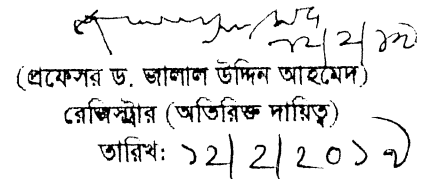 (প্রফেসর ড. জালাল উদ্দিন আহমেদ)
রেজিস্ট্রার (অতিরিক্ত দায়িত্ব)
তারিখ: ১২/২/২০১৭